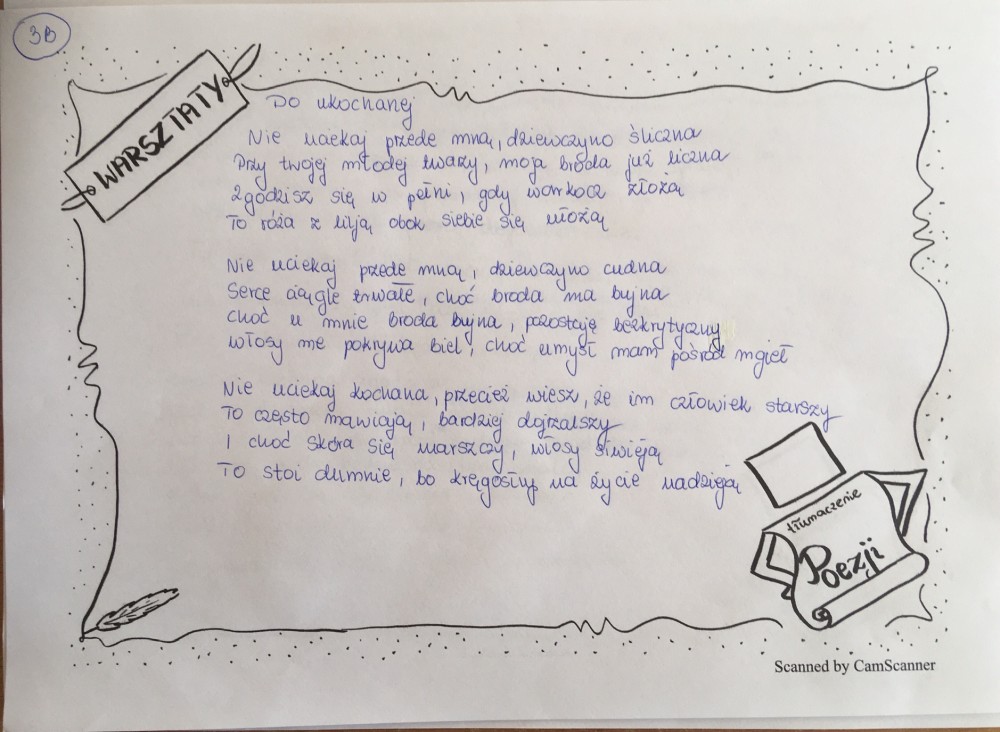 3B
WARSZTATY
Do ukochanej
Nie uciekaj przede mną, dziewczyno śliczna
Przy twojej młodej twarzy, moja broda już liczna
Zgodzisz się w pełni, gdy warkocz złożą
To róża z liliją obok siebie się ułożą
Nie uciekaj przede mną, dziewczyno cudna
Serce ciągle trwałe, choć broda ma bujna
choć u mnie broda bujna, pozostaję bezkrytyczny
włosy me pokrywa biel, choć umysł mam pośród mgieł
Nie uciekaj kochana, przecież wiesz, że im człowiek starszy
To często mawiają, bardziej dojrzalszy
I choć skóra się marszczy, włosy siwieją
To stoi dumnie, bo kręgosłup na życie nadzieją
tłumaczenie
Poezji
Scanned by CamScanner